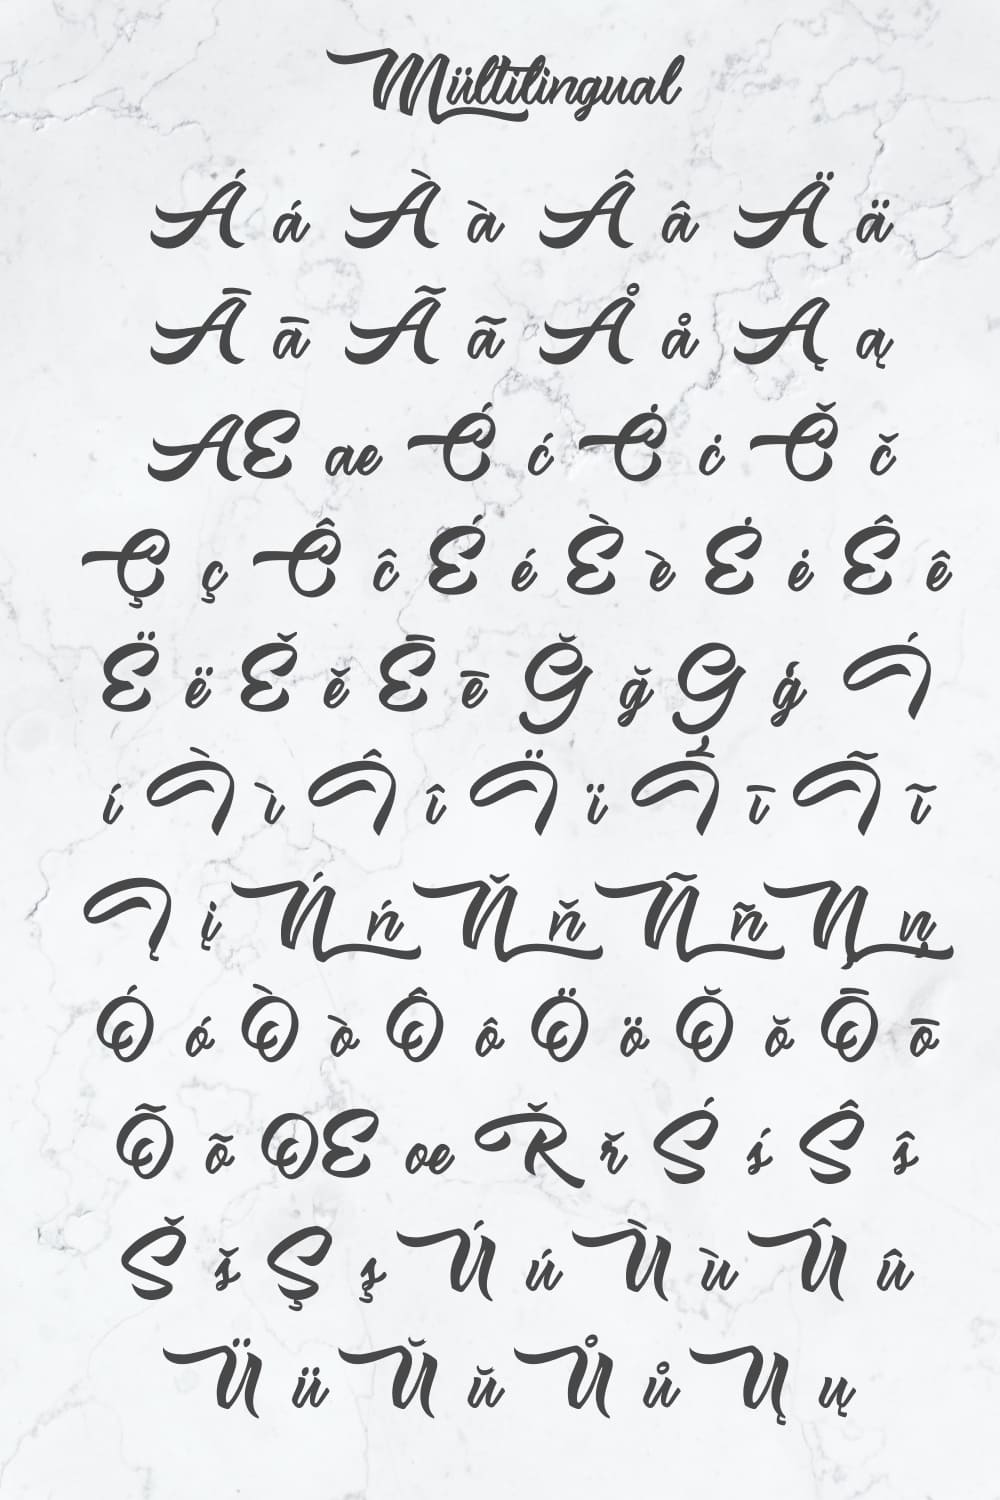 Mültilingual
Á á À à Â â Ä ä
Ā ā Ã ã Å å Ą ą
Æ æ Ć ć Ċ ċ Č č
Ç ç Ĉ ĉ É é È è Ė ė Ê ê
Ë ë Ě ě Ē ē Ğ ğ Ģ ģ Í
í Ì ì Î î Ï ï Ī ī Ĩ ĩ
Į į Ń ń Ň ň Ñ ñ Ņ ņ
Ó ó Ò ò Ô ô Ö ö Ŏ ŏ Ō ō
Õ õ Œ œ Ř ř Ś ś Ŝ ŝ
Š š Ş ş Ú ú Ù ù Û û
Ü ü Ŭ ŭ Ů ů Ų ų